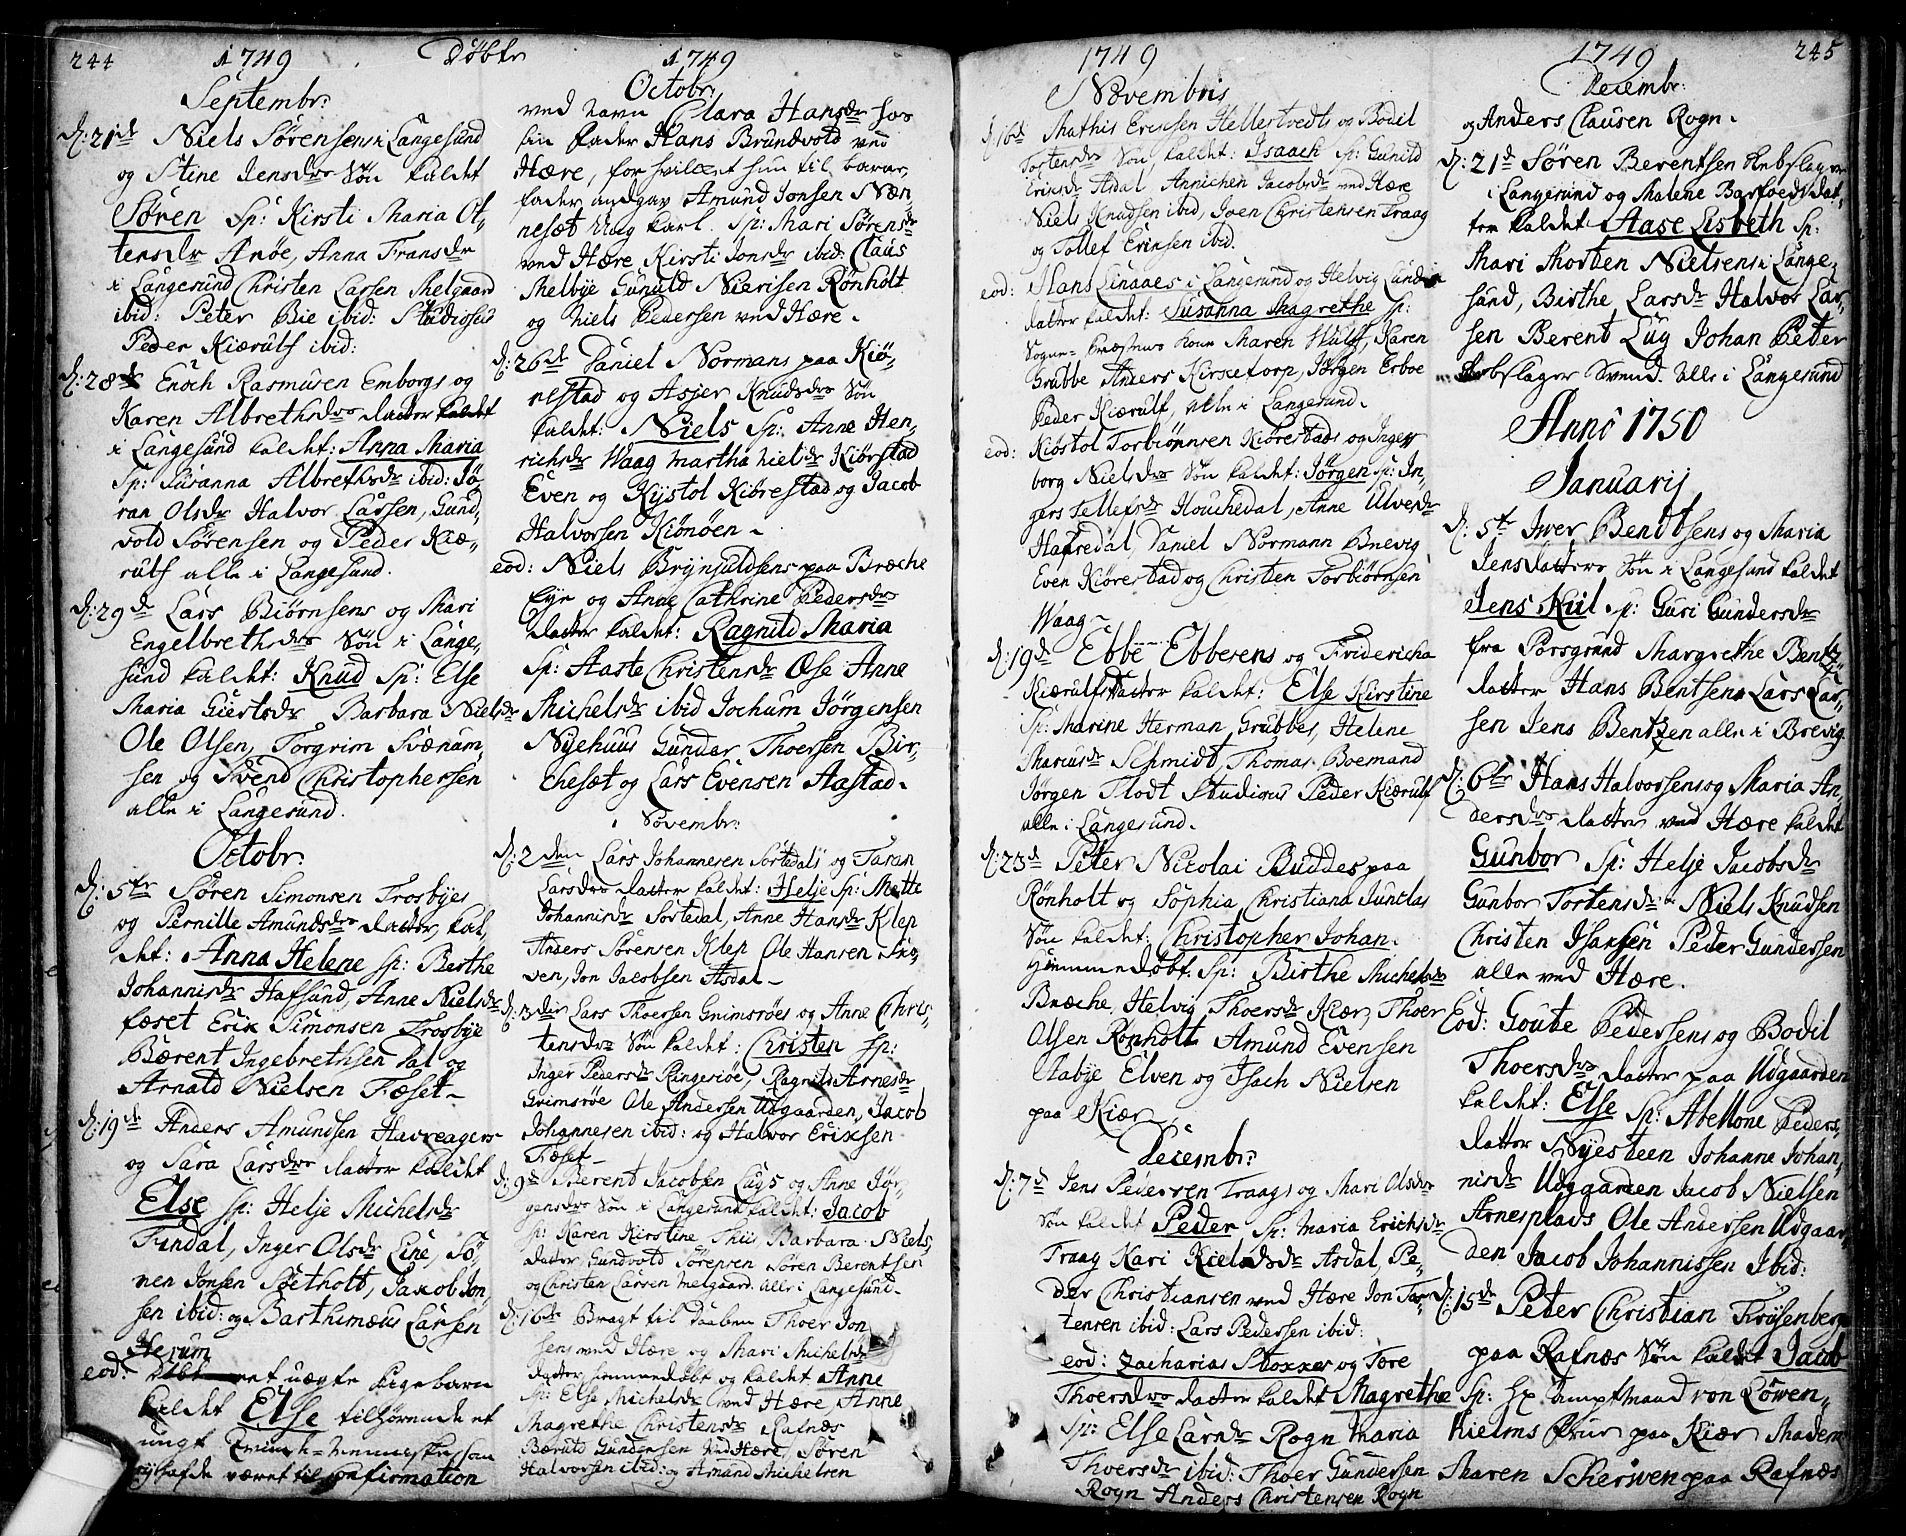 244
1749
Döbte
Septembr:
d: 21de Niels Sørensens i Langesund
og Stine Jensdrs Søn kaldet
Søren Sp: Kirsti Maria Ot,
tensdr Arøe, Anna Fransdr
i Langesund Christen Larsen Melgaard
ibid: Peter Bie ibid: Studiosus
Peder Kiærulf ibid:
d: 28de Enoch Rasmusen Emborgs og
Karen Albrethsdrs datter kaldet
i Langesund kaldet: Anna Maria
Sp: Susanna Albrethsdr ibid: Sø,
ran Olsdr Halvor Larsen, Gund,
vold Sørensen og Peder Kiæ,
rulf alle i Langesund.
d: 29de Lars Biørnsens og Mari
Engelbrethsdrs Søn i Lange,
sund kaldet: Knud Sp: Else
Maria Giertsdr Barbara Nielsdr
Ole Olsen, Torgrim Svænum,
sen og Svend Christophersen
alle i Langesund.
Octobr:
d: 5te Søren Simonsen Trosbyes
og Pernille Amundsdrs datter, kal,
det: Anna Helene Sp: Berthe
Johannisdr Hafsund, Anne Nielsdr
fæset Erik Simonsen Trosbye
Bærent Ingebrethsen Dal og
Arnald Nielsen Fæset
d: 19de Anders Amundsen Havreagers
og Sara Larsdrs datter kaldet
Else Sp: Helje Michelsdr
Findal, Inger Olsdr Eine, Sø,
ren Jonsen Søetholt, Jakob Jon,
sen ibid: og Barthimæus Larsen
Herum
eod: et uægte Pigebarn
kaldet Else tilhørende et
ungt Qvind-Menneske som
ey hafde været til Confirmation
1749
Octobr:
ved navn Clara Hansdr hos
sin Fader Hans Brundvold ved
Hære, for hvilket hun til barne
fader angav Amund Jonsen Næn,
neset Ung karl. Sp: Mari Sørensdr
ved Hære Kirsti Jonsdr ibid: Claus
Melbye Gunuld Nierisen Rønholt
og Niels Pedersen ved Hære.
d: 26de Daniel Normans paa Kiø,
relstad og Asjer Knudsdrs Søn
kaldet: Niels Sp: Anne Hen,
richsdr Waag Martha Nielsdr Kiørstad
Even og Kystol Kiørestad og Jacob
Halvorsen Kiønøen
eod: Niels Brynjuldsens paa Bræche
Eje og Anne Cathrine Pedersdrs
datter kaldet: Ragnild Maria
Sp: Aaste Christensdr Ose Anne
Michelsdr ibid Jochum Jørgensen
Nyehuus Gundar Thoersen Bir,
chesæt og Lars Evensen Aastad.
Novembr:
d: 2den Lars Johannesen Sortedals og Taran
Larsdrs datter kaldet: Helje Sp: Mette
Johannisdr Sortedal, Anne Hansdr Klep
Anders Sørensen Klep Ole Hansen
ven, Jon Jacobsen Asdal
d: 3die Lars Thoersen Grimsrøes og Anne Chris,
tensdrs Søn kaldet: Christen Sp:
Inger Pedersdr Ringesiøe, Ragnild Arnesdr
Grimsrøe Ole Andersen Udgaarden, Jacob
Johannesen ibid: og Halvor Eriksen
Fæset
d: 9de Berent Jacobsen Lugs og Anne Jør,
gensdrs Søn i Langesund kaldet: Jacob
Sp: Karen Kirstine Thue Barbara Niels,
datter, Gundvold Sørensen Søren Berentsen
og Christen Larsen Melgaard. Alle i Langesund
d: 16de Bragt til Daaben Thoer Jon
sens ved Hære og Mari Michelsdr
datter hjemmedøbt og kaldet Anne
Sp: Else Michelsdr ved Hære, Anne
Magrethe Christensdr Rafnæs
Bærulld Gundersen ved Hære, Søren
Halvorsen ibid: og Amund Michelsen
1749
Novembris
d: 16de Mathis Eriksen Hellestvedts og Bodil
Tortensdr Søn kaldet: Isaach Sp: Gunild
Eriksdr Asdal, Annichen Jacobsdr ved Hære
Niels Knudsen ibid, Joen Christensen Traag
og Tollef Eriksen ibid.
eod: Hans Linaaes i Langesund og Helvig Lunds
datter kaldet: Susanna Magrethe Sp:
Sogne-Præstens kone Maren Wulf, Karen
Grubbe Anders Kirketorp, Jørgen Erboe
Peder Kiærulf, alle i Langesund.
eod: Kiøstol Torbiønnsen Kiørestads og Inge,
borg Nielsdrs Søn kaldet: Jørgen Sp: In,
gers Tellefsdr Houchedal, Anne Ulvesdr
Hafredal, Daniel Normann Brevig
Even Kiørestad og Christen Torbiørnsen
Waag
d: 19de Ebbe Ebbesens og Fridericha
Kiærulfs datter kaldet: Else Kirstine
Sp: Marine Herman Grubbes, Helene
Mariusdr Schmidt, Thomas Boemand
Jørgen Flodt Studiosus Peder Kiærulf
alle i Langesund.
d: 23de Peter Nicolai Buddes paa
Rønholt og Sophia Christiana Juncias
Søn kaldet: Christopher Johan.
Hiemmedøbt. Sp: Birthe Michelsdr
Bræche, Helvig Thoersdr Kiær, Thoer
Olsen Rønholt Amund Evensen
Aabye Elven og Isach Nielsen
paa Kiær
Decembr:
d: 7de Jens Pedersen Traags og Mari Olsdrs
Søn kaldet Peder Sp: Maria Erichsdr
Traag Kari Kielsdr Asdal, Pe,
der Christiansen ved Hære Jon Tor,
tensen ibid: Lars Pedersen ibid:
eod: Zacharias Stokkes og Tore
Thoersdrs datter kaldet Magrethe
Sp: Else Larsdr Rogn Maria
Thoersdr ibid: Thoer Gundersen
Rogn Anders Christensen Rogn
1749
245
Decembr:
og Anders Clausen Rogn.
d: 21de Søren Berentsen Rebslagere
i Langesund og Malene Barfoeds dat,
ter kaldet Aase Lisbeth Sp:
Mari Morten Nielsens i Lange,
sund, Birthe Larsdr Halvor Lar,
sen Berent Lug Johan Peter
Rebslager Svend. Alle i Langesund
Anno 1750
Januarij
d: 5te Iwer Bendtsens og Maria
Jensdatters Søn i Langesund kaldet
Jens Kiil. Sp: Guri Gundersdr
fra Porsgrund Margrethe Bentz,
datter Hans Bentsen Lars Lar,
sen Jens Bentzen alle i Brevig
d: 6te Hans Halvorsens og Maria An,
dersdrs datter ved Hære kaldet
Gunbor Sp: Helje Jacobsdr
Gunbor Tortensdr Niels Knudsen
Christen Isaksen Peder Gundersen
alle ved Hære.
Eod: Goute Pedersens og Bodil
Thoersdrs datter paa Udgaarden
kaldet: Else Sp: Abellone Peders,
datter Nyesteen Johanne Johan,
nisdr Udgaarden Jacob Nielsen
Arnesplads Ole Andersen Udgaar,
den Jacob Johannissen Ibid:
d: 15de Peter Christian Frisenberg
paa Rafnæs Søn kaldet Jacob
Sp: Hr Ampt Mand von Löwen,
hielms Frue paa Kiær Madem
Maren Scherwen paa Rafnæs